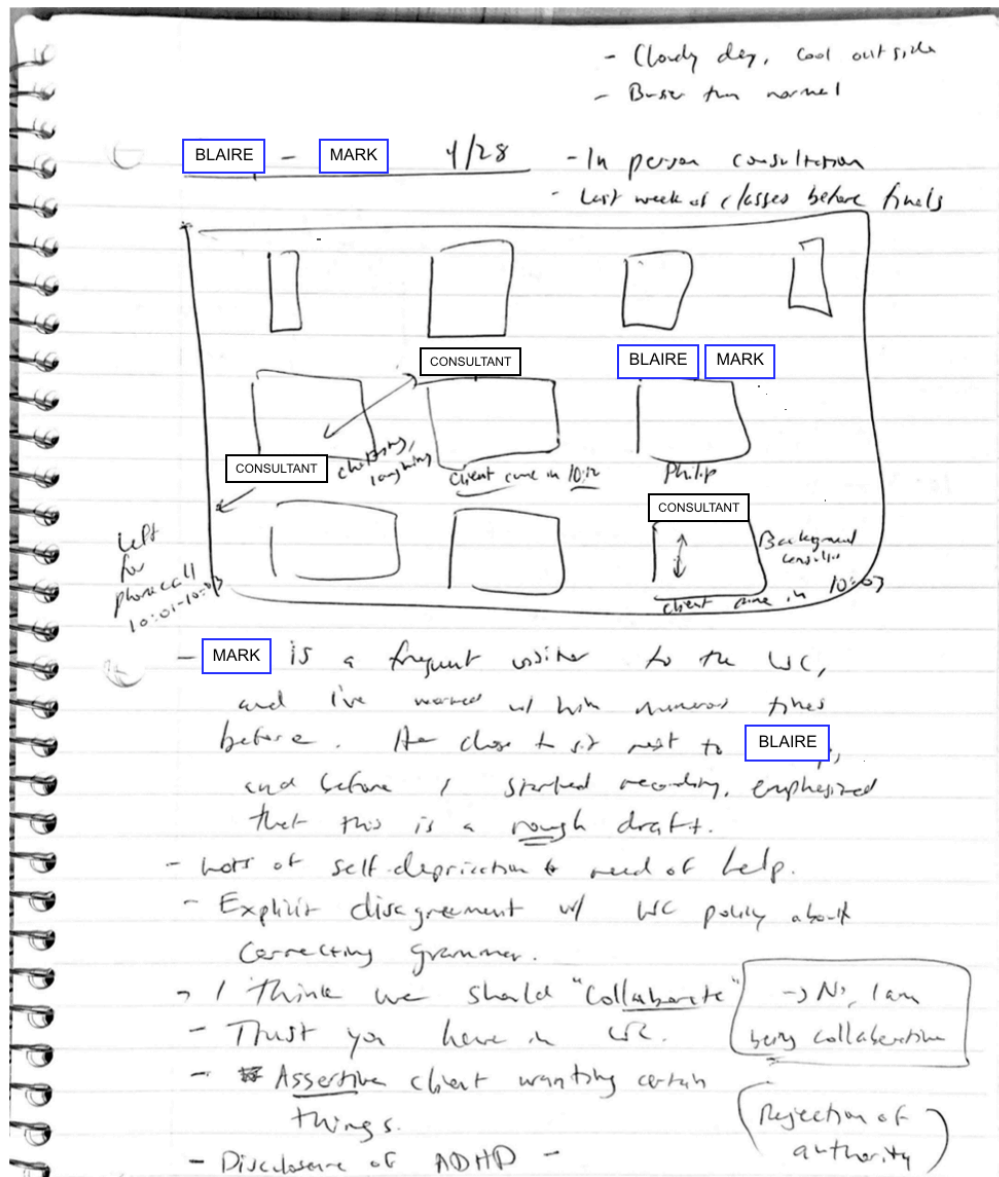 - Cloudy day, cool outside
- Busier than normal
BLAIRE - MARK 4/28
- In person consultation
- Last week of classes before finals
CONSULTANT
BLAIRE MARK
CONSULTANT
chatting, laughing
Client came in 10:12
Philip
CONSULTANT
Background
client came in 10:03
Left
for
phone call
10:01-10:03
- MARK is a frequent visitor to the WC,
and I've worked w/ him numerous times
before. He chose to sit next to BLAIRE,
and before I started recording, emphasized
that this is a rough draft.
- Lots of self-deprication & need of help.
- Explicit disagreement w/ WC policy about
correcting grammer.
→ I think we should "collaborate" → No, I am
being collaborative
- Trust you have in WC.
- Assertive client wanting certain
things.
(Rejection of
authority)
- Disclosure of ADHD -